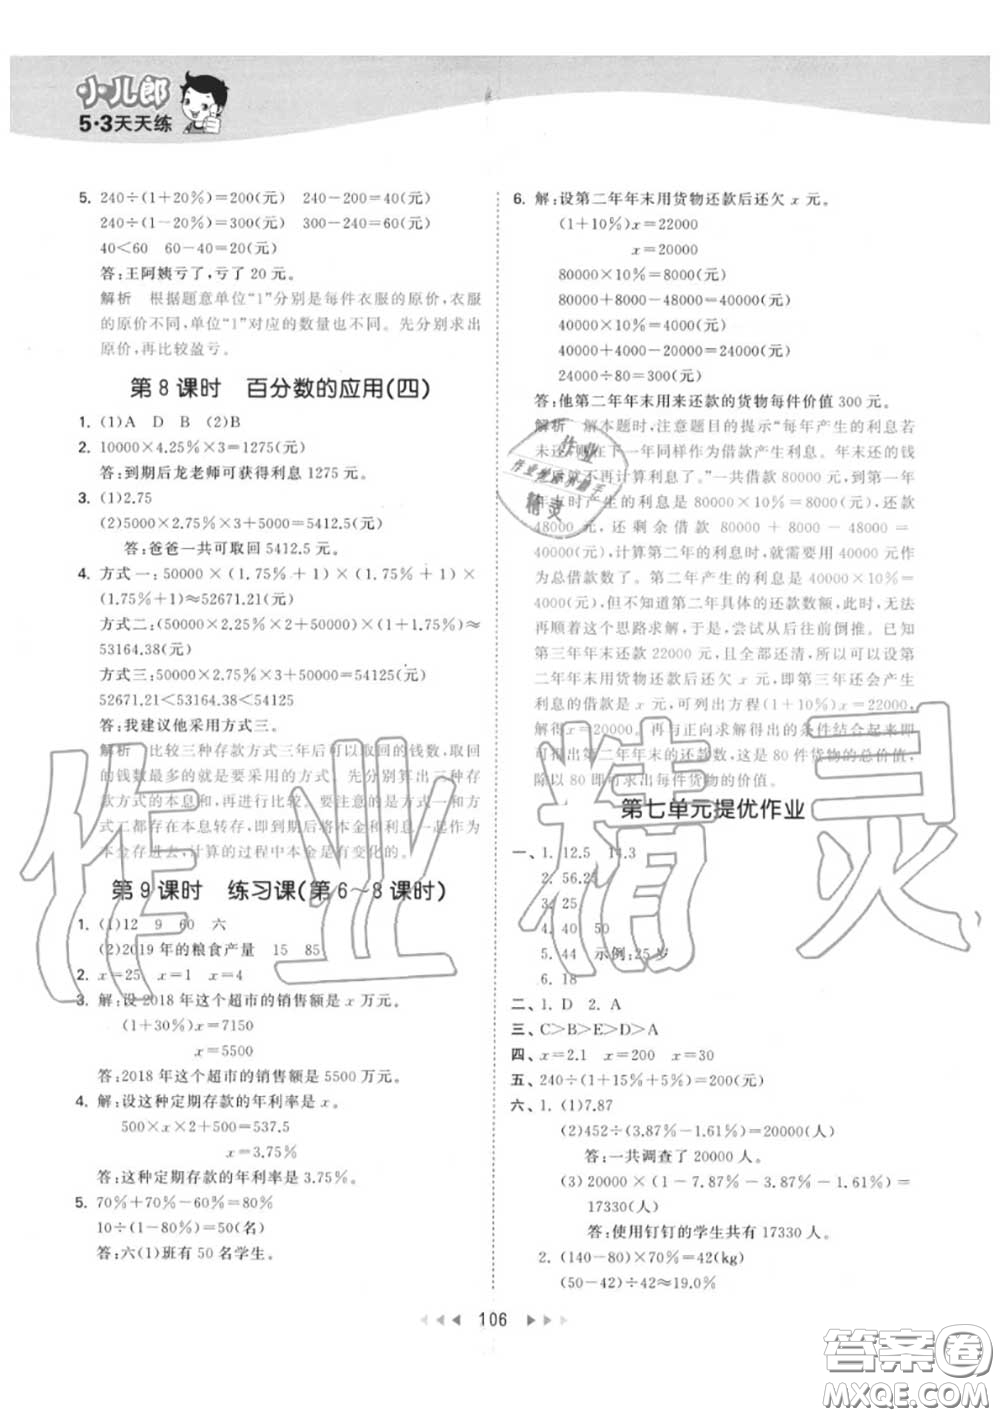 小儿郎
5·3天天练
5. 240÷(1+20%)=200(元) 240-200=40(元)
240÷(1-20%)=300(元) 300-240=60(元)
40<60 60-40=20(元)
答:王阿姨亏了,亏了 20 元。
解析 根据题意单位“1”分别是每件衣服的原价,衣服
的原价不同,单位“1”对应的数量也不同。先分别求出
原价,再比较盈亏。
第 8 课时 百分数的应用(四)
1. (1)A D B (2)B
2. 10000×4.25%×3=1275(元)
答:到期后龙老师可获得利息 1275 元。
3. (1)2.75
(2)5000×2.75%×3+5000=5412.5(元)
答:爸爸一共可取回 5412.5 元。
4. 方式一:50000×(1.75%+1)×(1.75%+1)×
(1.75%+1)≈52671.21(元)
方式二:(50000×2.25%×2+50000)×(1+1.75%)≈
53164.38(元)
方式三:50000×2.75%×3+50000=54125(元)
52671.21<53164.38<54125
答:我建议他采用方式三。
解析 比较三种存款方式三年后可以取回的钱数,取回
的钱数最多的就是要采用的方式。先分别算出三种存
款方式的本息和,再进行比较。要注意的是方式一和方
式二都存在本息转存,即到期后将本金和利息一起作为
本金存进去,计算的过程中本金是有变化的。
第 9 课时 练习课(第 6~8 课时)
1. (1)12 9 60 六
(2)2019 年的粮食产量 15 85
2. x=25 x=1 x=4
3. 解:设 2018 年这个超市的销售额是 x 万元。
(1+30%)x=7150
x=5500
答:2018 年这个超市的销售额是 5500 万元。
4. 解:设这种定期存款的年利率是 x。
500×x×2+500=537.5
x=3.75%
答:这种定期存款的年利率是 3.75%。
5. 70%+70%-60%=80%
10÷(1-80%)=50(名)
答:六(1)班有 50 名学生。
6. 解:设第二年年末用货物还款后还欠 x 元。
(1+10%)x=22000
x=20000
80000×10%=8000(元)
80000+8000-48000=40000(元)
40000×10%=4000(元)
40000+4000-20000=24000(元)
24000÷80=300(元)
答:他第二年年末用来还款的货物每件价值 300 元。
解析 解本题时,注意题目的提示“每年产生的利息若
未还,则在下一年同样作为借款产生利息。年末还的钱
数就不再计算利息了。”一共借款 80000 元,到第一年
年末时产生的利息是 80000×10%=8000(元),还款
48000 元,还剩余借款 80000+8000-48000=
40000(元),计算第二年的利息时,就需要用 40000 元作
为总借款数了。第二年产生的利息是 40000×10%=
4000(元),但不知道第二年具体的还款数额,此时,无法
再顺着这个思路求解,于是,尝试从后往前倒推。已知
第三年年末还款 22000 元,且全部还清,所以可以设第
二年年末用货物还款后还欠 x 元,即第三年还会产生
利息的借款是 x 元,可列出方程(1+10%)x=22000,
解得 x=20000。再与正向求解得出的条件结合起来即
可得出第二年年末的还款数,这是 80 件货物的总价值,
除以 80 即可求出每件货物的价值。
第七单元提优作业
一、1. 12.5 14.3
2. 56.25
3. 25
4. 40 50
5. 44 示例:25 岁
6. 18
二、1. D 2. A
三、C>B>E>D>A
四、x=2.1 x=200 x=30
五、240÷(1+15%+5%)=200(元)
六、1. (1)7.87
(2)452÷(3.87%-1.61%)=20000(人)
答:一共调查了 20000 人。
(3)20000×(1-7.87%-3.87%-1.61%)=
17330(人)
答:使用钉钉的学生共有 17330 人。
2. (140-80)×70%=42(kg)
(50-42)÷42≈19.0%
106
作业精灵
答案圈
MXQE.COM